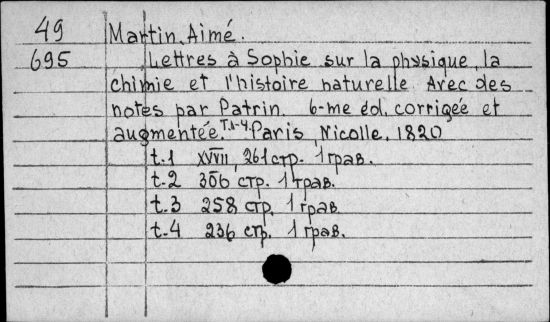 49 Martin, Aimé.
695 Lettres à Sophie sur la physique, la
chimie et l'histoire naturelle Avec des
notes par Patrin. 6-me éd. corrigée et
augmentée. T.1-4. Paris, Nicolle, 1820
t.1 XVIII, 261 стр. 1 грав.
t.2 306 стр. 1 грав.
t.3 258 стр. 1 грав.
t.4 236 стр. 1 грав.